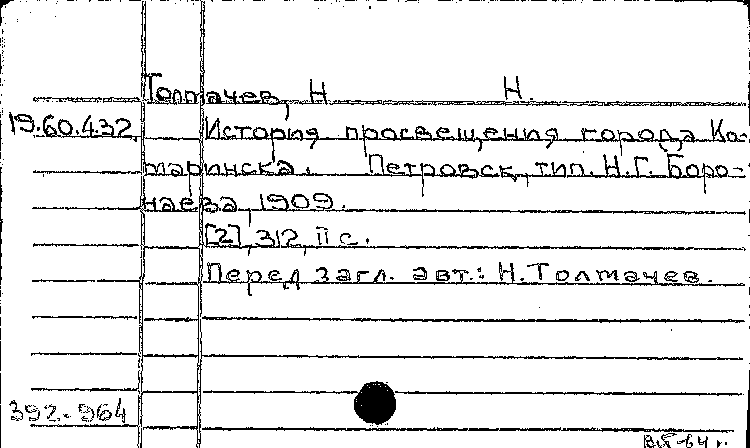 Толмачев, Н Н.
19.60.432 История просвещения города Ка-
маринска. Петровск, тип. Н.Г. Боро-
наева, 1909.
[2], 312, II с.
Перед загл. авт.: Н. Толмачев.
392-964